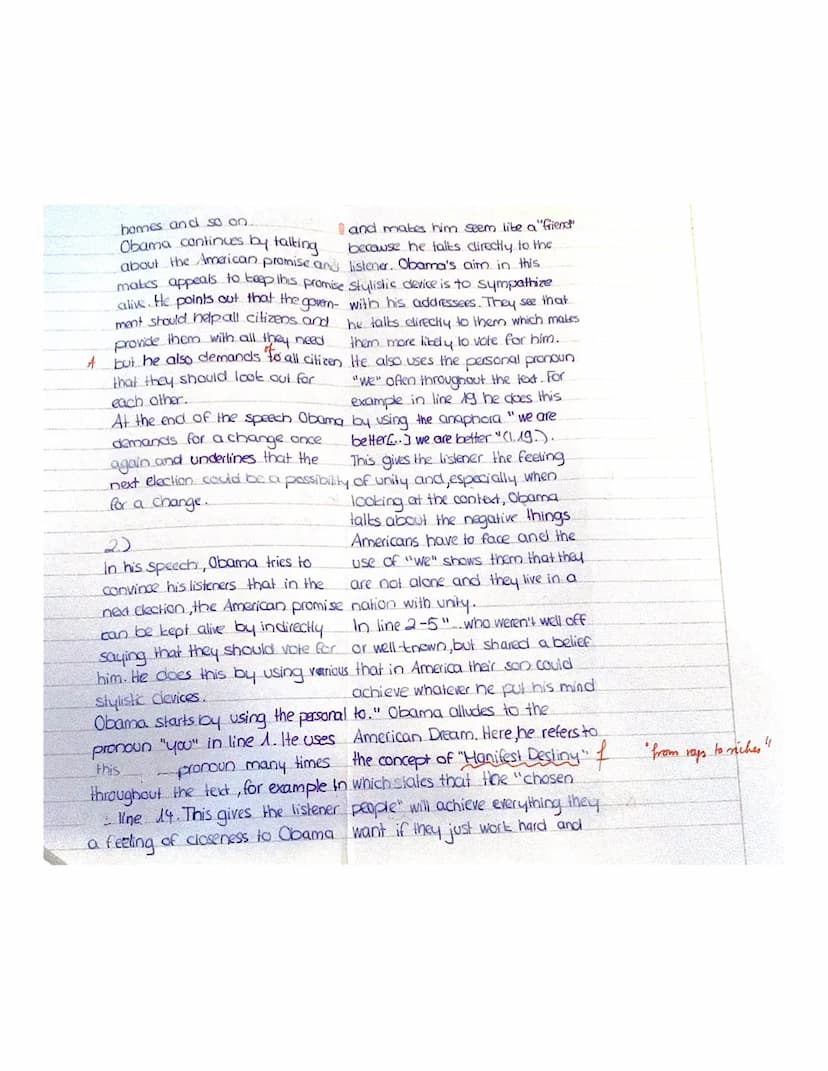 homes and so on.
Obama continues by talking
about the American promise and
makes appeals to keep this promise
alive. He points out that the govern-
ment should help all citizens and
provide them with all they need
A but he also demands of to all citizen
that they should look out for
each other.
At the end of the speech Obama
demands for a change once
again and underlines that the
next election could be a possibility
for a change.
2.)
In his speech, Obama tries to
convince his listeners that in the
next election, the American promise
can be kept alive by indirectly
saying that they should vote for
him. He does this by using various
stylistic devices.
Obama starts by using the personal
pronoun "you" in line 1. He uses
this pronoun many times
throughout the text, for example in
line 14. This gives the listener
a feeling of closeness to Obama
and makes him seem like a "friend"
because he talks directly to the
listener. Obama's aim in this
stylistic device is to sympathize
with his addressees. They see that
he talks directly to them which makes
them more likely to vote for him.
He also uses the personal pronoun
"we" often throughout the text. For
example in line 19 he does this
by using the anaphora "we are
better[..] we are better "(l.19.).
This gives the listener the feeling
of unity and, especially when
looking at the context, Obama
talks about the negative things
Americans have to face and the
use of "we" shows them that they
are not alone and they live in a
nation with unity.
In line 2-5 "...who weren't well off
or well-known, but shared a belief
that in America their son could
achieve whatever he put his mind
to." Obama alludes to the
American Dream. Here, he refers to
the concept of "Manifest Destiny" f "from rags to riches"
which states that the "chosen
people" will achieve everything they
want if they just work hard and